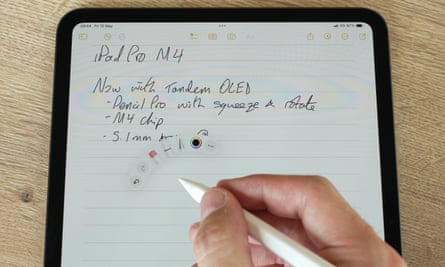 09:54 Fri 10 May
iPad Pro M4
Now with Tandem OLED
- Pencil Pro with squeeze & rotate
- M4 chip
- 5.1mm